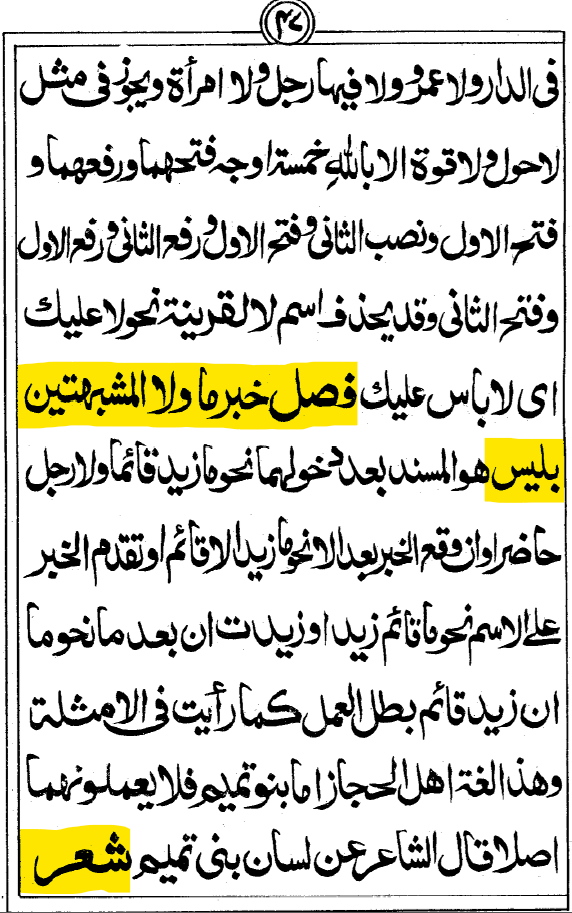 ۴۷
فى الدار ولا عمرو ولا فيها رجل ولا امرأة ويجوز فى مثل
لاحول ولا قوة الا بالله خمسة اوجه فتحهما ورفعهما و
فتح الاول ونصب الثانى وفتح الاول ورفع الثانى ورفع الاول
وفتح الثانى وقد يحذف اسم لا لقرينة نحو لا عليك
اى لا باس عليك فصل خبر ما ولا المشبهتين
بليس هو المسند بعد دخولهما نحو ما زيد قائما ولا رجل
حاضرا وان وقع الخبر بعد الا نحو ما زيد الا قائم او تقدم الخبر
على الاسم نحو ما قائم زيد او زيدت ان بعد ما نحو ما
ان زيد قائم بطل العمل كما رأيت فى الامثلة
وهذا لغة اهل الحجاز اما بنو تميم فلا يعملونهما
اصلا قال الشاعر عن لسان بنى تميم شعر